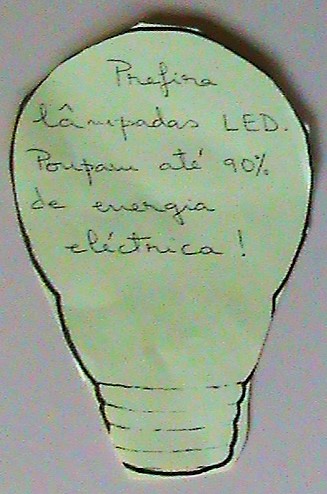 Prefira
lâmpadas LED.
Poupam até 90%
de energia
eléctrica!